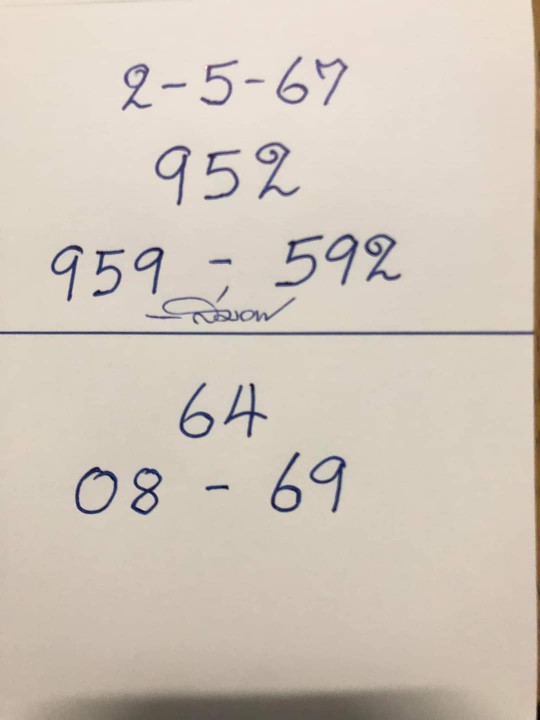 2-5-67
952
959 - 592
64
08 - 69